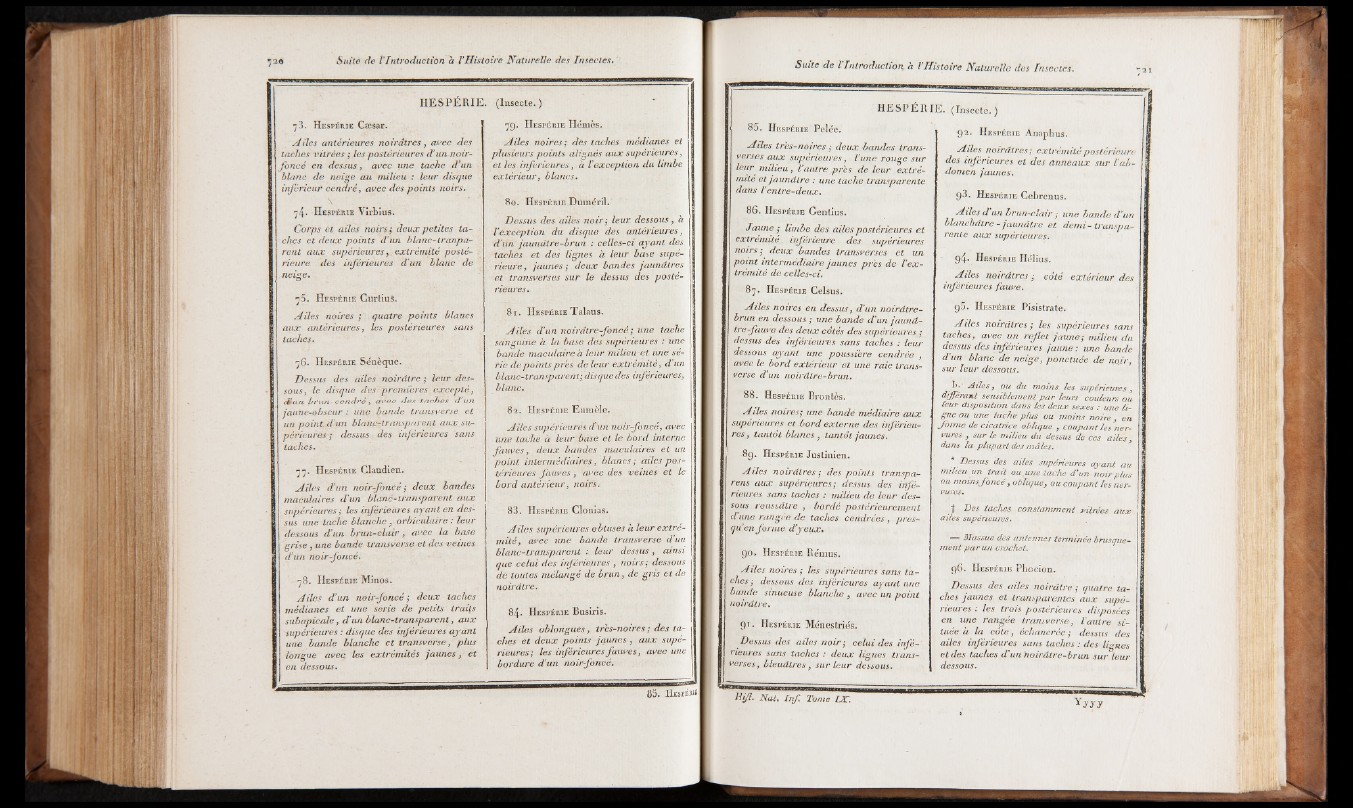 720
Suite de l'Introduction à l'Histoire Naturelle des Insectes.
HESPÉRIE. (Insecte.)
73. Hespérie Cæsar.
Ailes antérieures noirâtres, avec des
taches vitrées; les postérieures d'un noir-
foncé en dessus, avec une tache d'un
blanc de neige au milieu : leur disque
inférieur cendré, avec des points noirs.
74. Hespérie Virbius.
Corps et ailes noirs; deux petites ta-
ches et deux points d'un blanc-tranpa-
rent aux supérieures, extrémité posté-
rieure des inférieures d'un blanc de
neige.
75. Hespérie Curtius.
Ailes noires ; quatre points blancs
aux antérieures, les postérieures sans
taches.
76. Hespérie Sénèque.
Dessus des ailes noirâtre ; leur des-
sous, le disque des premières excepté,
d'un brun cendré, avec des taches d'un
jaune-obscur : une bande transverse et
un point d'un blanc-transparent aux su-
périeures ; dessus des inférieures sans
taches.
77. Hespérie Claudien.
Ailes d'un noir-foncé ; deux bandes
maculaires d'un blanc-transparent aux
supérieures ; les inférieures ayant en des-
sus une tache blanche, orbiculaire : leur
dessous d'un brun-clair, avec la base
grise, une bande transverse et des veines
d'un noir-foncé.
78. Hespérie Minos.
Ailes d'un noir-foncé ; deux taches
médianes et une série de petits traits
subapicale, d'un blanc-transparent, aux
supérieures : disque des inférieures ayant
une bande blanche et transverse, plus
longue avec les extrémités jaunes, et
en dessous.
79. Hespérie Hémès.
Ailes noires; des taches médianes et
plusieurs points alignés aux supérieures,
et les inférieures, à l'exception du limbe
extérieur, blancs.
80. Hespérie Duméril.
Dessus des ailes noir; leur dessous, à
l'exception du disque des antérieures,
d'un jaunâtre-brun : celles-ci ayant des
taches et des lignes à leur base supé-
rieure, jaunes ; deux bandes jaunâtres
et transverses sur le dessus des posté-
rieures.
81. Hespérie Talaus.
Ailes d'un noirâtre-foncé ; une tache
sanguine à la base des supérieures : une
bande maculaire à leur milieu et une sé-
rie de points près de leur extrémité, d'un
blanc-transparent; disque des inférieures,
blanc.
82. Hespérie Eumèle.
Ailes supérieures d'un noir-foncé, avec
une tache à leur base et le bord interne
fauves, deux bandes maculaires et un
point intermédiaires, blancs ; ailes pos-
térieures fauves, avec des veines et le
bord antérieur, noirs.
83. Hespérie Clonias.
Ailes supérieures obtuses à leur extré-
mité, avec une bande transverse d'un
blanc-transparent : leur dessus, ainsi
que celui des inférieures, noirs; dessous
de toutes mélangé de brun, de gris et de
noirâtre.
84. Hespérie Busiris.
Ailes oblongues, très-noires; des ta-
ches et deux points jaunes, aux supé-
rieures; les inférieures fauves, avec une
bordure d'un noir-foncé.
85. Hespérie
Suite de l'Introduction à l'Histoire Naturelle des Insectes.
721
HESPÉRIE. (Insecte.)
85. Hespérie Pelée.
Ailes très-noires ; deux bandes trans-
verses aux supérieures, l'une rouge sur
leur milieu, l'autre près de leur extré-
mité et jaunâtre : une tache transparente
dans l'entre-deux.
86. Hespérie Gentius.
Jaune ; limbe des ailes postérieures et
extrémité inférieure des supérieures
noirs ; deux bandes transverses et un
point intermédiaire jaunes près de l'ex-
trémité de celles-ci.
87. Hespérie Celsus.
Ailes noires en dessus, d'un noirâtre-
brun en dessous ; une bande d'un jaunâ-
tre-fauve des deux côtés des supérieures ;
dessus des inférieures sans taches : leur
dessous ayant une poussière cendrée,
avec le bord extérieur et une raie trans-
verse d'un noirâtre-brun.
88. Hespérie Brontès.
Ailes noires; une bande médiaire aux
supérieures et bord externe des inférieu-
res, tantôt blancs, tantôt jaunes.
89. Hespérie Justinien.
Ailes noirâtres ; des points transpa-
rens aux supérieures; dessus des infé-
rieures sans taches : milieu de leur des-
sous roussâtre, bordé postérieurement
d'une rangée de taches cendrées, pres-
qu'en forme d'yeux.
90. Hespérie Rémus.
Ailes noires ; les supérieures sans ta-
ches ; dessous des inférieures ayant une
bande sinueuse blanche, avec un point
noirâtre.
91. Hespérie Ménestriés.
Dessus des ailes noir; celui des infé-
rieures sans taches : deux lignes trans-
verses, bleuâtres, sur leur dessous.
92. Hespérie Anaphus.
Ailes noirâtres; extrémité postérieure
des inférieures et des anneaux sur l'ab-
domen jaunes.
93. Hespérie Cebrenus.
Ailes d'un brun-clair ; une bande d'un
blanchâtre-jaunâtre et demi-transpa-
rente aux supérieures.
94. Hespérie Hélius.
Ailes noirâtres ; côté extérieur des
inférieures fauve.
95. Hespérie Pisistrate.
Ailes noirâtres ; les supérieures sans
taches, avec un reflet jaune; milieu du
dessus des inférieures jaune : une bande
d'un blanc de neige, ponctuée de noir,
sur leur dessous.
b. Ailes, ou du moins les supérieures,
différant sensiblement par leurs couleurs ou
leur disposition dans les deux sexes : une li-
gne ou une tache plus ou moins noire, en
forme de cicatrice oblique, coupant les ner-
vures, sur le milieu du dessus de ces ailes,
dans la plupart des mâles.
* Dessus des ailes supérieures ayant au
milieu un trait ou une tache d'un noir plus
ou moins foncé, oblique, ou coupant les ner-
vures.
† Des taches constamment vitrées aux
ailes supérieures.
— Massue des antennes terminée brusque-
ment par un crochet.
96. Hespérie Phocion.
Dessus des ailes noirâtre ; quatre ta-
ches jaunes et transparentes aux supé-
rieures : les trois postérieures disposées
en une rangée transverse, l'autre si-
tuée à la côte, échancrée ; dessus des
ailes inférieures sans taches : des lignes
et des taches d'un noirâtre-brun sur leur
dessous.
Hist. Nat. Inf. Tome IX.
Yyyy